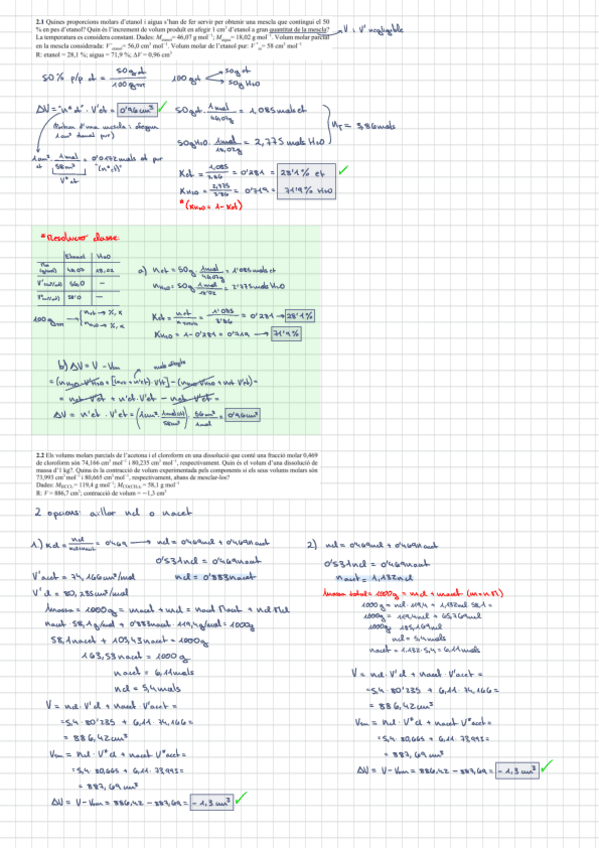 2.1 Quines proporcions molars d'etanol i aigua s'han de fer servir per obtenir una mescla que contingui el 50
% en pes d'etanol? Quin és l'increment de volum produït en afegir 1 cm³ d'etanol a gran quantitat de la mescla?
V i V' negligible
La temperatura es considera constant. Dades: Metanol= 46,07 g mol⁻¹; Maigua= 18,02 g mol⁻¹. Volum molar parcial
en la mescla considerada: V'etanol= 56,0 cm³ mol⁻¹. Volum molar de l'etanol pur: V°et= 58 cm³ mol⁻¹
R: etanol = 28,1 %; aigua = 71,9 %; ΔV = 0,96 cm³
50% p/p et = 50g et / 100g m
100 g et
50g et
50g H2O
ΔV = "n* et" · V'et = 0'96cm³
50g et · 1mol / 46,07g = 1,085mols et
50g H2O · 1mol / 18,02g = 2,775 mols H2O
nT = 3,86mols
1cm³ · 1mol / 58cm³ = 0'0172mols et pur
V° et
"(n* et)"
Xet = 1,085 / 3,86 = 0'281 = 28'1% et
XH2O = 2,775 / 3,86 = 0'719 = 71'9% H2O
*(XH2O = 1 - Xet)
*Resolució classe:
Etanol H2O
46,07 18,02
56,0 -
58'0 -
a) net = 50g · 1mol / 46,07g = 1'085mols et
nH2O = 50g · 1mol / 18'02 = 2'775mols et
Xet = net / = 1'085 / 3'86 = 0'281 → 28'1%
XH2O = 1 - 0'281 = 0'719 → 71'9%
b) ΔV = V - Vm
= net·V'et + n'et·V'et - net·V'et =
ΔV = n'et · V'et = (1cm³ · 1mol / 58cm³) · 56cm³ / 1mol = 0'96cm³
2.2 Els volums molars parcials de l'acetona i el cloroform en una dissolució que conté una fracció molar 0,469
de cloroform són 74,166 cm³ mol⁻¹ i 80,235 cm³ mol⁻¹, respectivament. Quin és el volum d'una dissolució de
massa d'1 kg?. Quina és la contracció de volum experimentada pels components si els seus volums molars són
73,993 cm³ mol⁻¹ i 80,665 cm³ mol⁻¹, respectivament, abans de mesclar-los?
R: V = 886,7 cm³; contracció de volum = −1,3 cm³
2 opcions: aïllar ncl o nacet
1.) Xcl = = 0'469 → ncl = 0'469ncl + 0'469nacet
0'531ncl = 0'469nacet
V'acet = 74,166cm³/mol
ncl = 0'883nacet
V'cl = 80,235cm³/mol
1massa = 1000g = macet + mcl = nacet Macet + ncl Mcl
nacet · 58,1g/mol + 0'883nacet · 119,4g/mol = 1000g
58,1nacet + 105,43nacet = 1000g
163,53nacet = 1000g
nacet = 6,11mols
ncl = 5,4mols
V = ncl · V'cl + nacet V'acet =
=5,4 · 80'235 + 6,11 · 74,166 =
= 886,42cm³
Vm = ncl · V°cl + nacet V°acet =
=5,4 · 80,665 + 6,11 · 73,993 =
= 887,69 cm³
ΔV = V - Vm = 886,42 - 887,69 = -1,3 cm³
2) ncl = 0'469ncl + 0'469nacet
0'531ncl = 0'469nacet
nacet = 1,132ncl
1massa total = 1000g = mcl + macet (m = n·M)
1000g = ncl · 119,4 + 1,132ncl · 58,1 =
1000g = 119,4ncl + 65,769ncl
1000g = 185,169ncl
ncl = 5,4mols
nacet = 1,132 · 5,4 = 6,11mols
V = ncl · V'cl + nacet V'acet =
=5,4 · 80'235 + 6,11 · 74,166 =
= 886,42cm³
Vm = ncl · V°cl + nacet V°acet =
=5,4 · 80,665 + 6,11 · 73,993 =
= 887,69 cm³
ΔV = V - Vm = 886,42 - 887,69 = -1,3 cm³